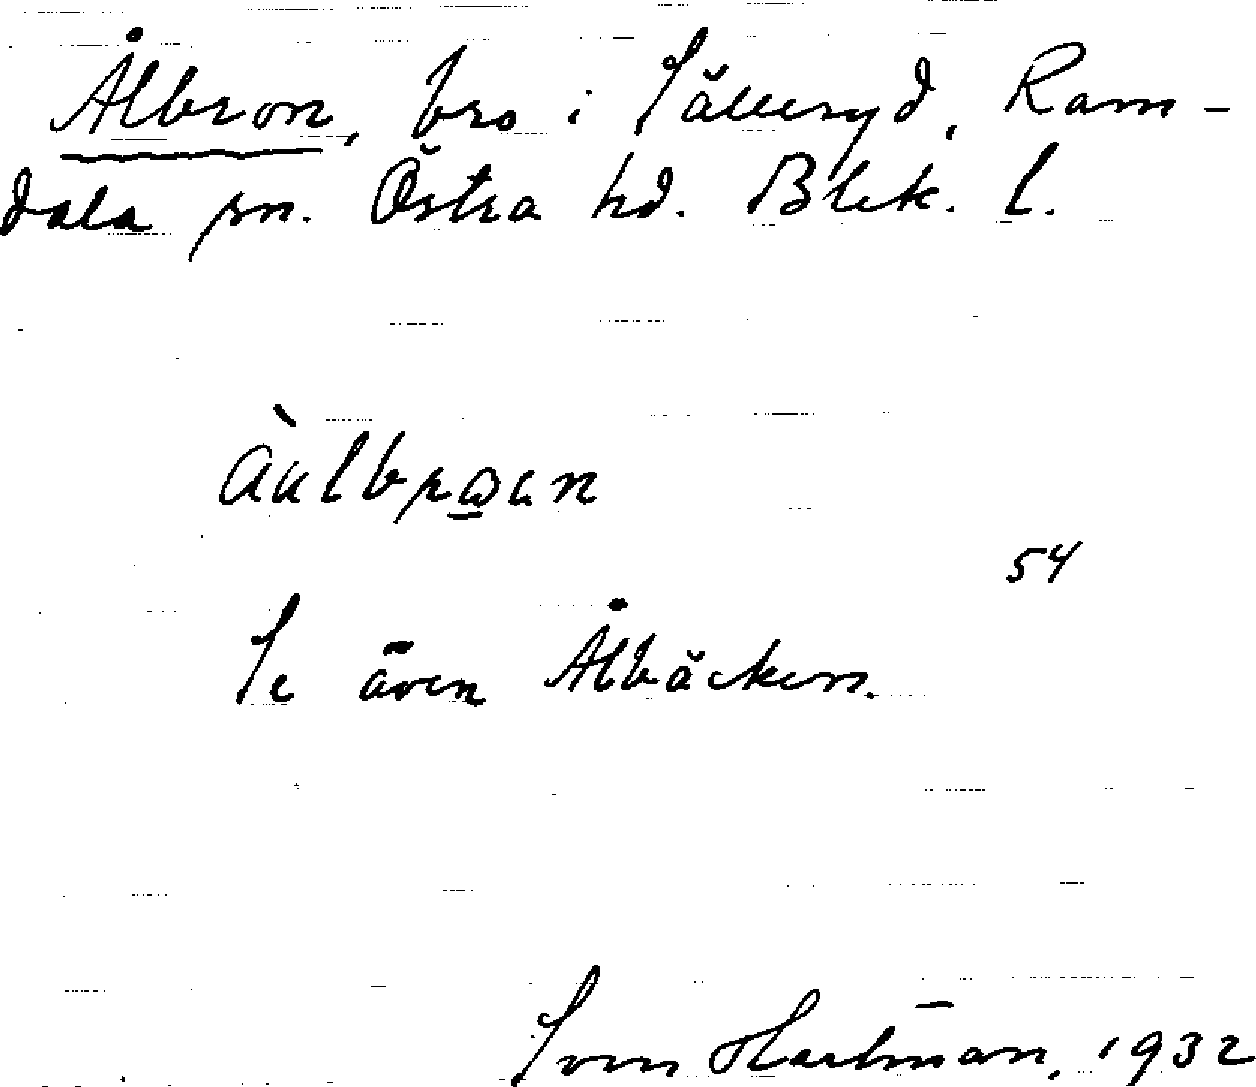 Ålbron, bro i Sälleryd, Ram-
dala sn. Östra hd. Blek. l.
àulbrωun
54
Se även Ålbäcken.
Sven Hartman, 1932